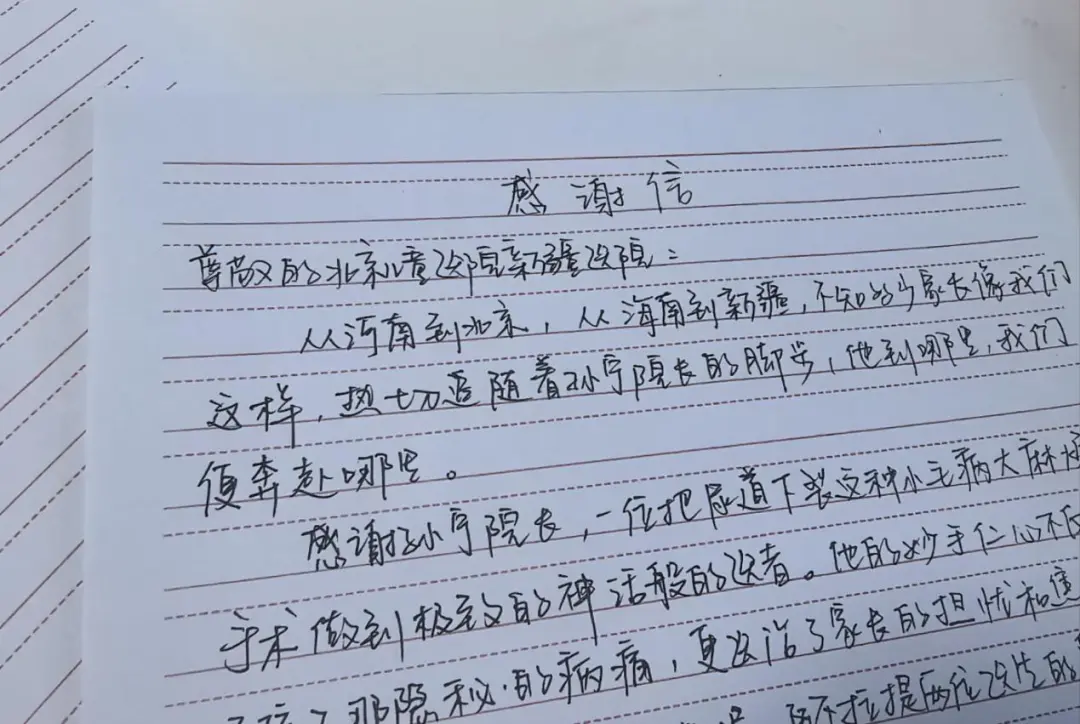 感谢信
尊敬的北京儿童医院新疆医院：
从河南到北京，从海南到新疆，不知多少家长像我们
这样，热切追随着孙宁院长的脚步，他到哪里，我们
便奔赴哪里。
感谢孙宁院长，一位把尿道下裂这种小毛病大麻烦
手术做到极致的神话般的医者。他的妙手仁心不仅
那隐秘的病痛，更医治了家长的担忧和焦
不得不提两位医生的